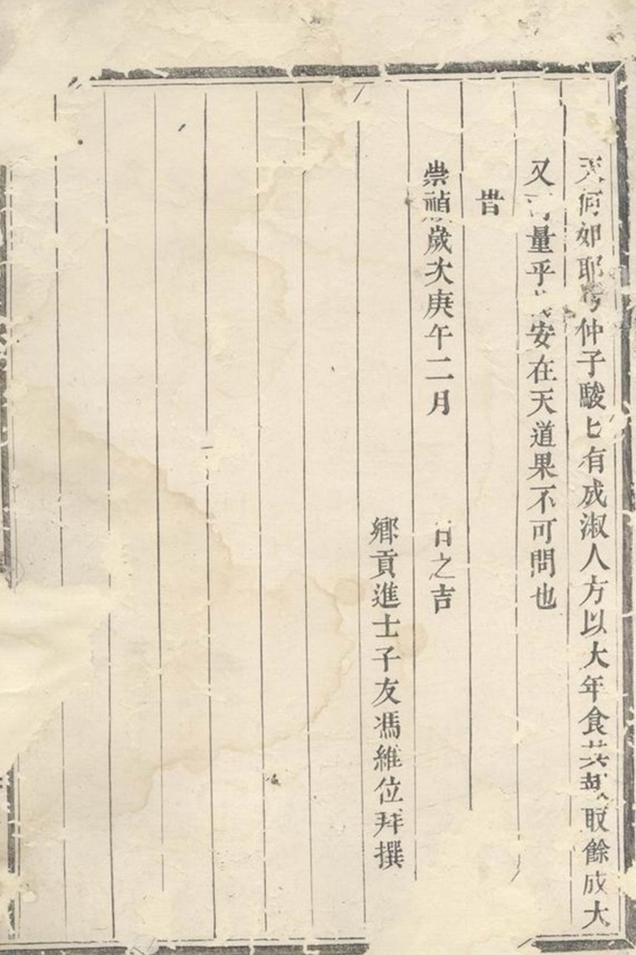 天何如耶 仲子駿已有成淑人方以大年食其報取餘成大
又 量乎 安在天道果不可問也
旹
崇禎歲次庚午二月 日之吉
鄉貢進士子友馮維位拜撰